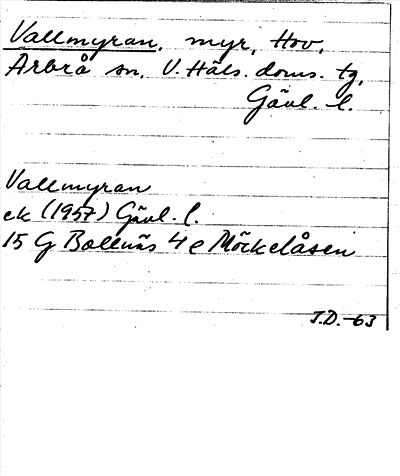 Vallmyran, myr, Hov,
Arbrå sn, V. Häls. doms. tg,
Gävl. l.
Vallmyran
ek (1957) Gävl. l.
15 G Bollnäs 4 e Möckelåsen
J.D.-63